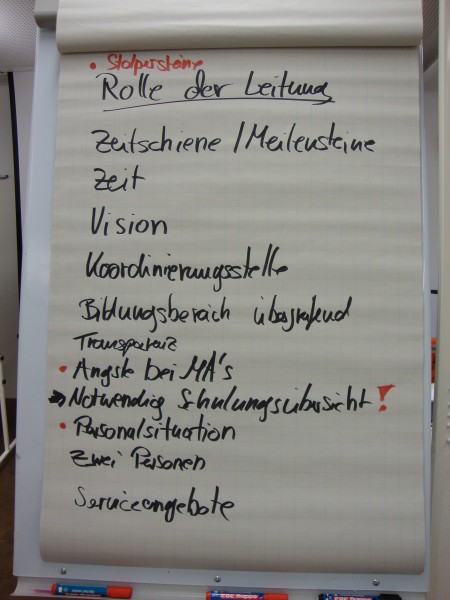 • Stolpersteine
Rolle der Leitung
Zeitschiene / Meilensteine
Zeit
Vision
Koordinierungsstelle
Bildungsbereich übergreifend
Transparenz
• Ängste bei MA's
→ Notwendig Schulungsübersicht!
• Personalsituation
Zwei Personen
Serviceangebote